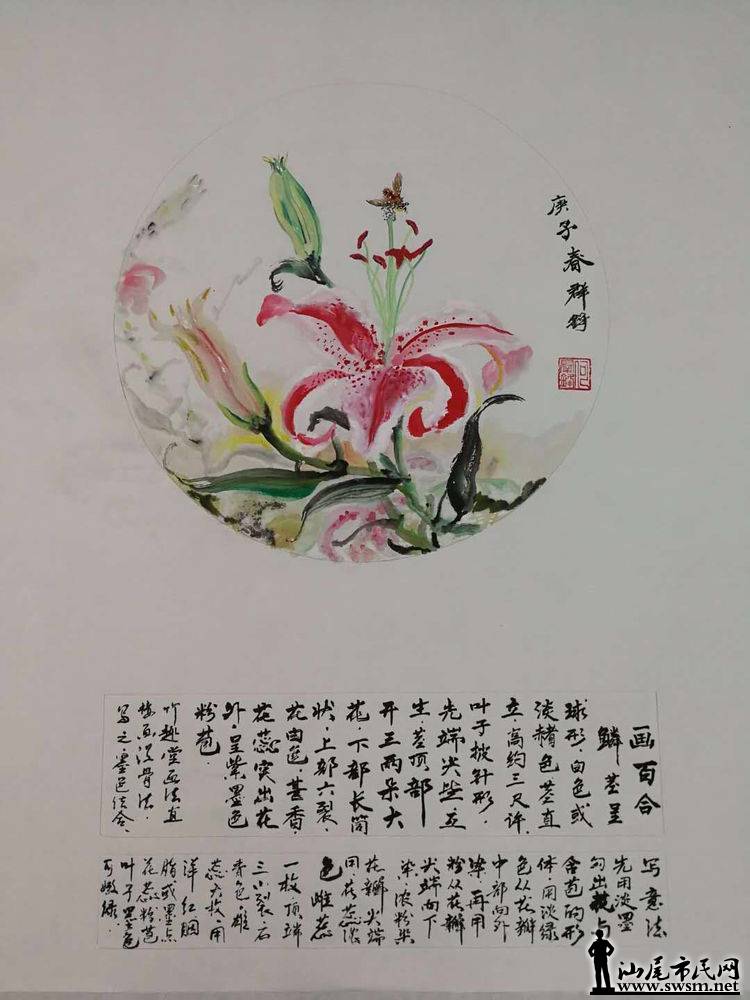 庚子春群
画百合
鳞茎呈
球形，白色或
淡赭色茎直
立，高约三尺许，
叶子披针形，
先端尖些互
生，茎顶部
开三两朵大
花，下部长筒
状，上部六裂，
花曲色甚香，
花蕊突出花
外，呈紫墨色
粉苞．
竹趣堂画法直
接画没骨法．
写之．墨色结合．
写意法
先用淡墨
勾出花与
含苞的形
体，用淡绿
色从花瓣
中部向外
染，再用
粉从花瓣
尖端向下
染，浓粉染
花瓣尖端
同，花蕊浓
色雌蕊
一枚，顶端
三小裂石
青色，雄
蕊六枚，用
洋红胭
脂或墨点
花蕊粉苞
叶子墨色
可嫩绿．
汕尾市民网
www.swsm.net